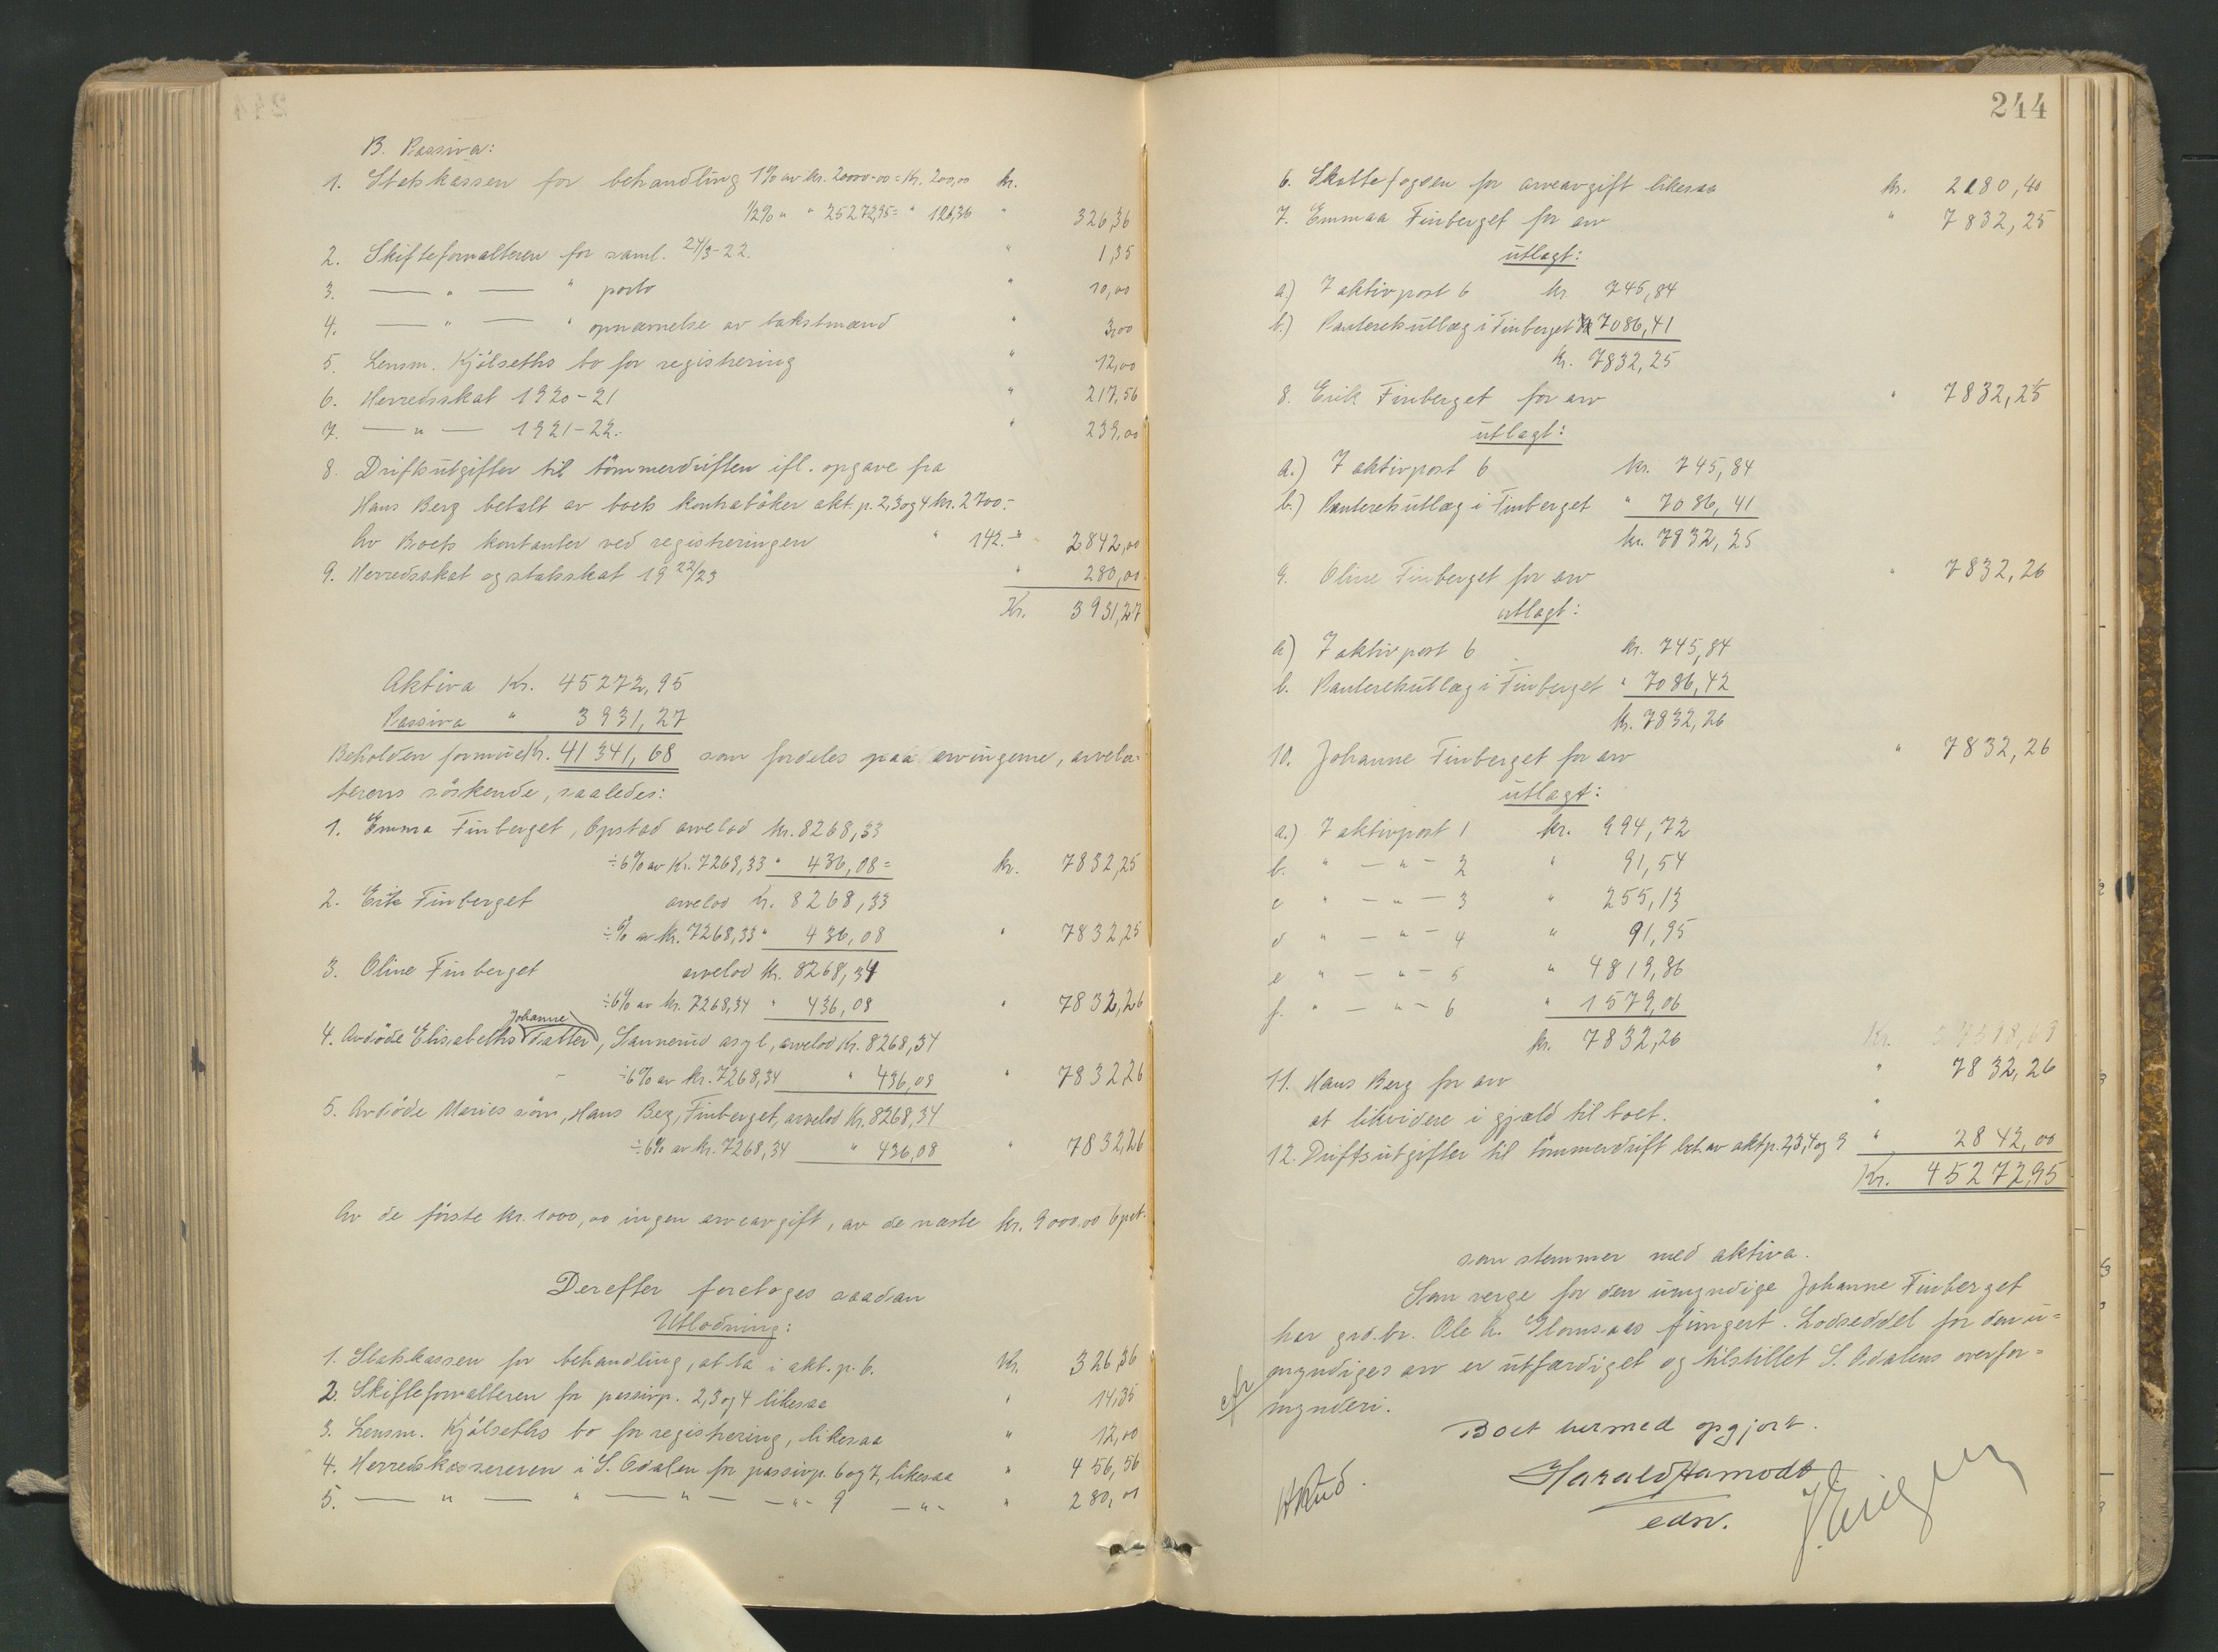 B. Passiva:
1. Statskassen for behandling 1% av kr. 20000-00 = Kr. 200,00 kr.
1/2% " " 25272,95 = " 126,36 " 326,36
2. Skifteforvalteren for saml. 24/3-22. " 1,35
3. — " — " porto " 10,00
4. — " — " opnævnelse av takstmænd " 3,00
5. Lensm. Kjölseths bo for registrering " 12,00
6. Herredsskat 1920-21 " 217,56
7. — " — 1921-22. " 239,00
8. Driftsutgifter til tömmerdriften ifl. opgave fra
Hans Berg betalt av boets kontraböker akt. p. 2,3 og 4 kr. 2700.-
Av Boets kontanter ved registreringen " 142.- " 2842,00
9. Herredsskat og statsskat 19 22/23 " 280,00
Kr. 3931,27
Aktiva Kr. 45272,95
Passiva " 3931,27
Beholden formue Kr. 41341,68 som fordeles paa arvingerne, arvela-
terens söskende, saaledes:
1. Emma Finberget, Opstad arvelod kr. 8268,33
÷ 6% av Kr. 7268,33 " 436,08 = kr. 7832,25
2. Erik Finberget arvelod Kr. 8268,33
÷ % av kr. 7268,33 " 436,08 " 7832,25
3. Oline Finberget arvelod kr. 8268,34
÷ 6% av kr. 7268,34 " 436,08 " 7832,26
Johanne
4. Avdöde Elisabeths datter, Sannerud asyl, arvelod Kr. 8268,34
÷ 6% av kr. 7268,34 " 436,08 " 7832,26
5. Avdöde Maries sön, Hans Berg, Finberget, arvelod Kr. 8268,34
÷ 6% av kr. 7268,34 " 436,08 " 7832,26
Av de förste kr. 1000,00 ingen arveavgift, av de næste kr. 9000.00 6 pct.
Derefter foretoges saadan
Utlodning:
1. Statskassen for behandling, at ta i akt. p. 6. Kr. 326,36
2 Skifteforvalteren for passivp. 2,3 og 4 likesaa " 14,35
3. Lensm. Kjölseths bo for registrering, likesaa " 12,00
4. Herredskassereren i S. Odalen for passivp. 6 og 7, likesaa " 456,56
5. — " — " — " — — " - 9 — " - " 280,00
244
6. Skattefogden for arveavgift likesaa kr. 2180,40
7. Emmaa Finberget for arv " 7832,25
utlagt:
a) I aktivpost 6 kr. 745,84
b.) Panteretsutlæg i Finberget Kr 7086,41
kr. 7832,25
8. Erik Finberget for arv " 7832,25
utlagt:
a.) I aktivpost 6 kr. 745,84
b.) Panteretsutlæg i Finberget " 7086,41
kr. 7832,25
9. Oline Finberget for arv " 7832,26
utlagt:
a) I aktivpost 6 kr. 745,84
b. Panteretsutlæg i Finberget " 7086,42
kr. 7832,26
10. Johanne Finberget for arv " 7832,26
utlagt:
a.) I aktivpost 1 kr. 994,72
b. " — " — 2 " 91,54
c " — " — 3 " 255,13
d " — " — 4 " 91,95
e " — " — 5 " 4819,86
f. " — " — 6 " 1579,06
kr. 7832,26
11. Hans Berg for arv " 7832,26
at likvidere i gjæld til boet. "
12. Driftsutgifter til tömmerdrift bet. av aktp. 2,3,4 og 9 " 2842,00
Kr. 45272,95
som stemmer med aktiva.
Som verge for den umyndige Johanne Finberget
har grd.br. Ole A. Glomsaas fungert. Lodseddel for den u=
myndiges arv er utfærdiget og tilstillet S. Odalens overfor=
mynderi.
Boet hermed opgjort.
Harald Hamodt
edsv.